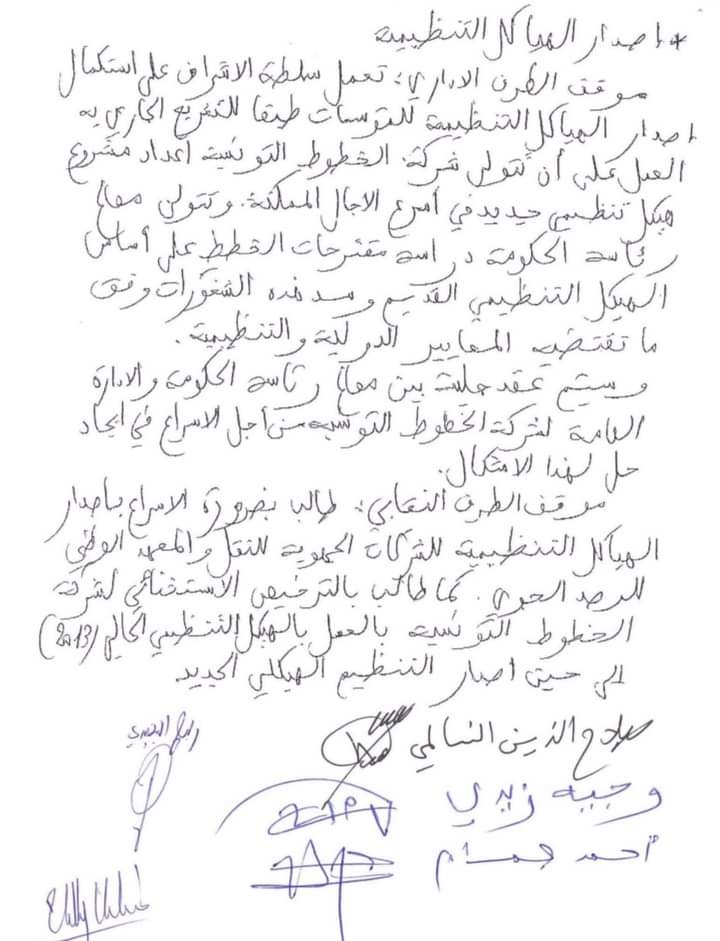 * إصدار الهياكل التنظيمية
موقف الطرف الاداري: تعمل سلطة الاشراف على استكمال
إصدار الهياكل التنظيمية للمؤسسات طبقا للتشريع الجاري به
العمل على أن تتولى شركة الخطوط التونسية اعداد مشروع
هيكل تنظيمي جديد في أسرع الاجال الممكنة. وتتولى مصالح
رئاسة الحكومة دراسة مقترحات الخطط على أساس
الهيكل التنظيمي القديم وسد هذه الشغورات وفق
ما تقتضيه المعايير الدولية والتنظيمية.
وسيتم عقد جلسة بين مصالح رئاسة الحكومة والادارة
العامة لشركة الخطوط التونسية من أجل الاسراع في ايجاد
حل لهذا الاشكال.
موقف الطرف النقابي: طالب بضرورة الاسراع باصدار
الهياكل التنظيمية للشركات الجهوية للنقل والمعهد الوطني
للرصد الجوي. كما طالب بالترخيص الاستثنائي لشركة
الخطوط التونسية بالعمل بالهيكل التنظيمي الحالي (2013)
الى حين اصدار التنظيم الهيكلي الجديد
صلاح الدين السالمي
وجيه زيدي
أحمد